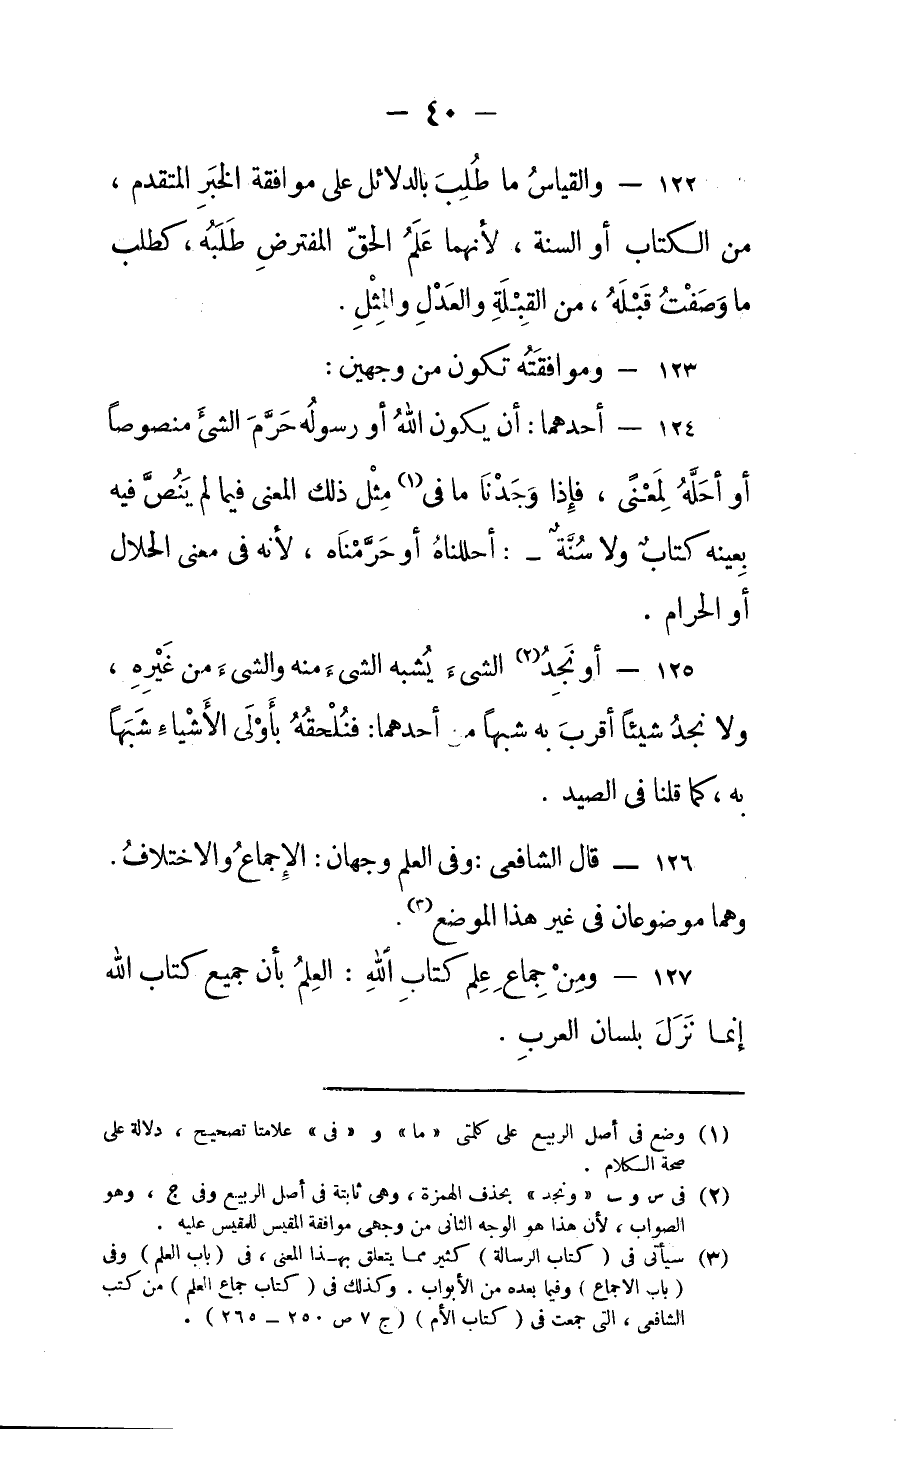 — ٤٠ —
١٢٢ — والقياسُ ما طُلِبَ بالدلائل على موافقة الخبَرِ المتقدم ،
من الكتاب أو السنة ، لأنهما عَلَمُ الحقّ المفترضِ طَلَبُه ، كطلب
ما وَصَفْتُ قَبْلَهُ ، من القِبْلَةِ والعَدْلِ والمِثْلِ .
١٢٣ — وموافقَتُه تكون من وجهين :
١٢٤ — أحدهما : أن يكون اللهُ أو رسولُه حَرَّمَ الشئَ منصوصاً
أو أحَلَّهُ لِمَعْنًى ، فإذا وَجَدْنَا ما فى(١) مِثْل ذلك المعنى فيما لم يَنُصَّ فيه
بِعينه كتابٌ ولا سُنَّةٌ ـ : أحللناهُ أو حَرَّمْنَاه ، لأنه فى معنى الحلال
أو الحرام .
١٢٥ — أو نَجِدُ(٢) الشىءَ يُشبه الشىءَ منه والشىءَ من غَيْرِهِ ،
ولا نجدُ شيئاً أقربَ به شبهاً من أحدهما : فنُلْحقُهُ بأَوْلَى الأَشْياءِ شَبَهاً
به ، كما قلنا فى الصيد .
١٢٦ — قال الشافعى : وفى العلم وجهان : الإجماعُ والاختلافُ .
وهما موضوعان فى غير هذا الموضع(٣) .
١٢٧ — ومِنْ جِماعِ عِلم كتابِ اللهِ : العلِمُ بأن جميع كتاب الله
إنما نَزَلَ بلسان العربِ .
(١) وضع فى أصل الربيع على كلمتى « ما » و « فى » علامتا تصحيح ، دلالة على
صحة الكلام .
(٢) فى س و ب « ونجد » بحذف الهمزة ، وهى ثابتة فى أصل الربيع وفى ج ، وهو
الصواب ، لأن هذا هو الوجه الثانى من وجهى موافقة المقيس للمقيس عليه .
(٣) سيأتى فى ( كتاب الرسالة ) كثير مما يتعلق بهذا المعنى ، فى ( باب العلم ) وفى
( باب الاجماع ) وفيما بعده من الأبواب . وكذلك فى ( كتاب جماع العلم ) من كتب
الشافعى ، التى جمعت فى ( كتاب الأم ) ( ج ٧ ص ٢٥٠ — ٢٦٥ ) .